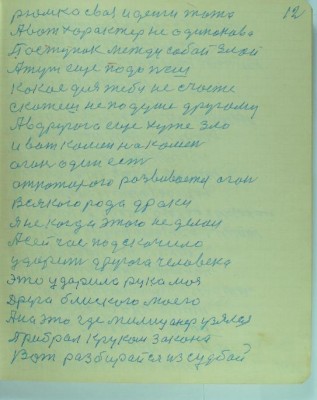 12
рюмка своя и деньги тоже
А вот характер не одинаково
Поступок между собой злой
А тут еще подожгли
Какое для тебя не счастье
Скажеш не подуше другому
А вдругога еще хуже зло
и вот камен на камен
огон один ест
от которого развивается огон
Всякого рода драки
Я не когда этого не делал
А сейчас подскочило
ударить друга человека
Это ударила рука моя
Друга блиского моего
А на это где милиционер узялся
Прибрал кругом закона
Вот разбирайся из судбой